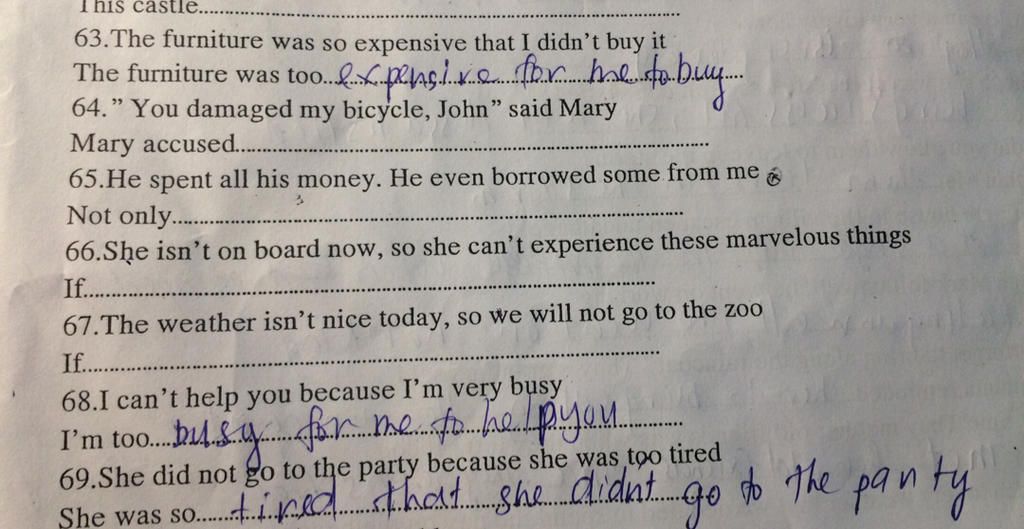 This castle................................................
63.The furniture was so expensive that I didn't buy it
The furniture was too...expensive for me to buy....
64." You damaged my bicycle, John" said Mary
Mary accused................................................
65.He spent all his money. He even borrowed some from me
Not only................................................
66.She isn't on board now, so she can't experience these marvelous things
If................................................
67.The weather isn't nice today, so we will not go to the zoo
If................................................
68.I can't help you because I'm very busy
I'm too....busy for me to help you............
69.She did not go to the party because she was too tired
She was so.....tired that she didn't go to the panty